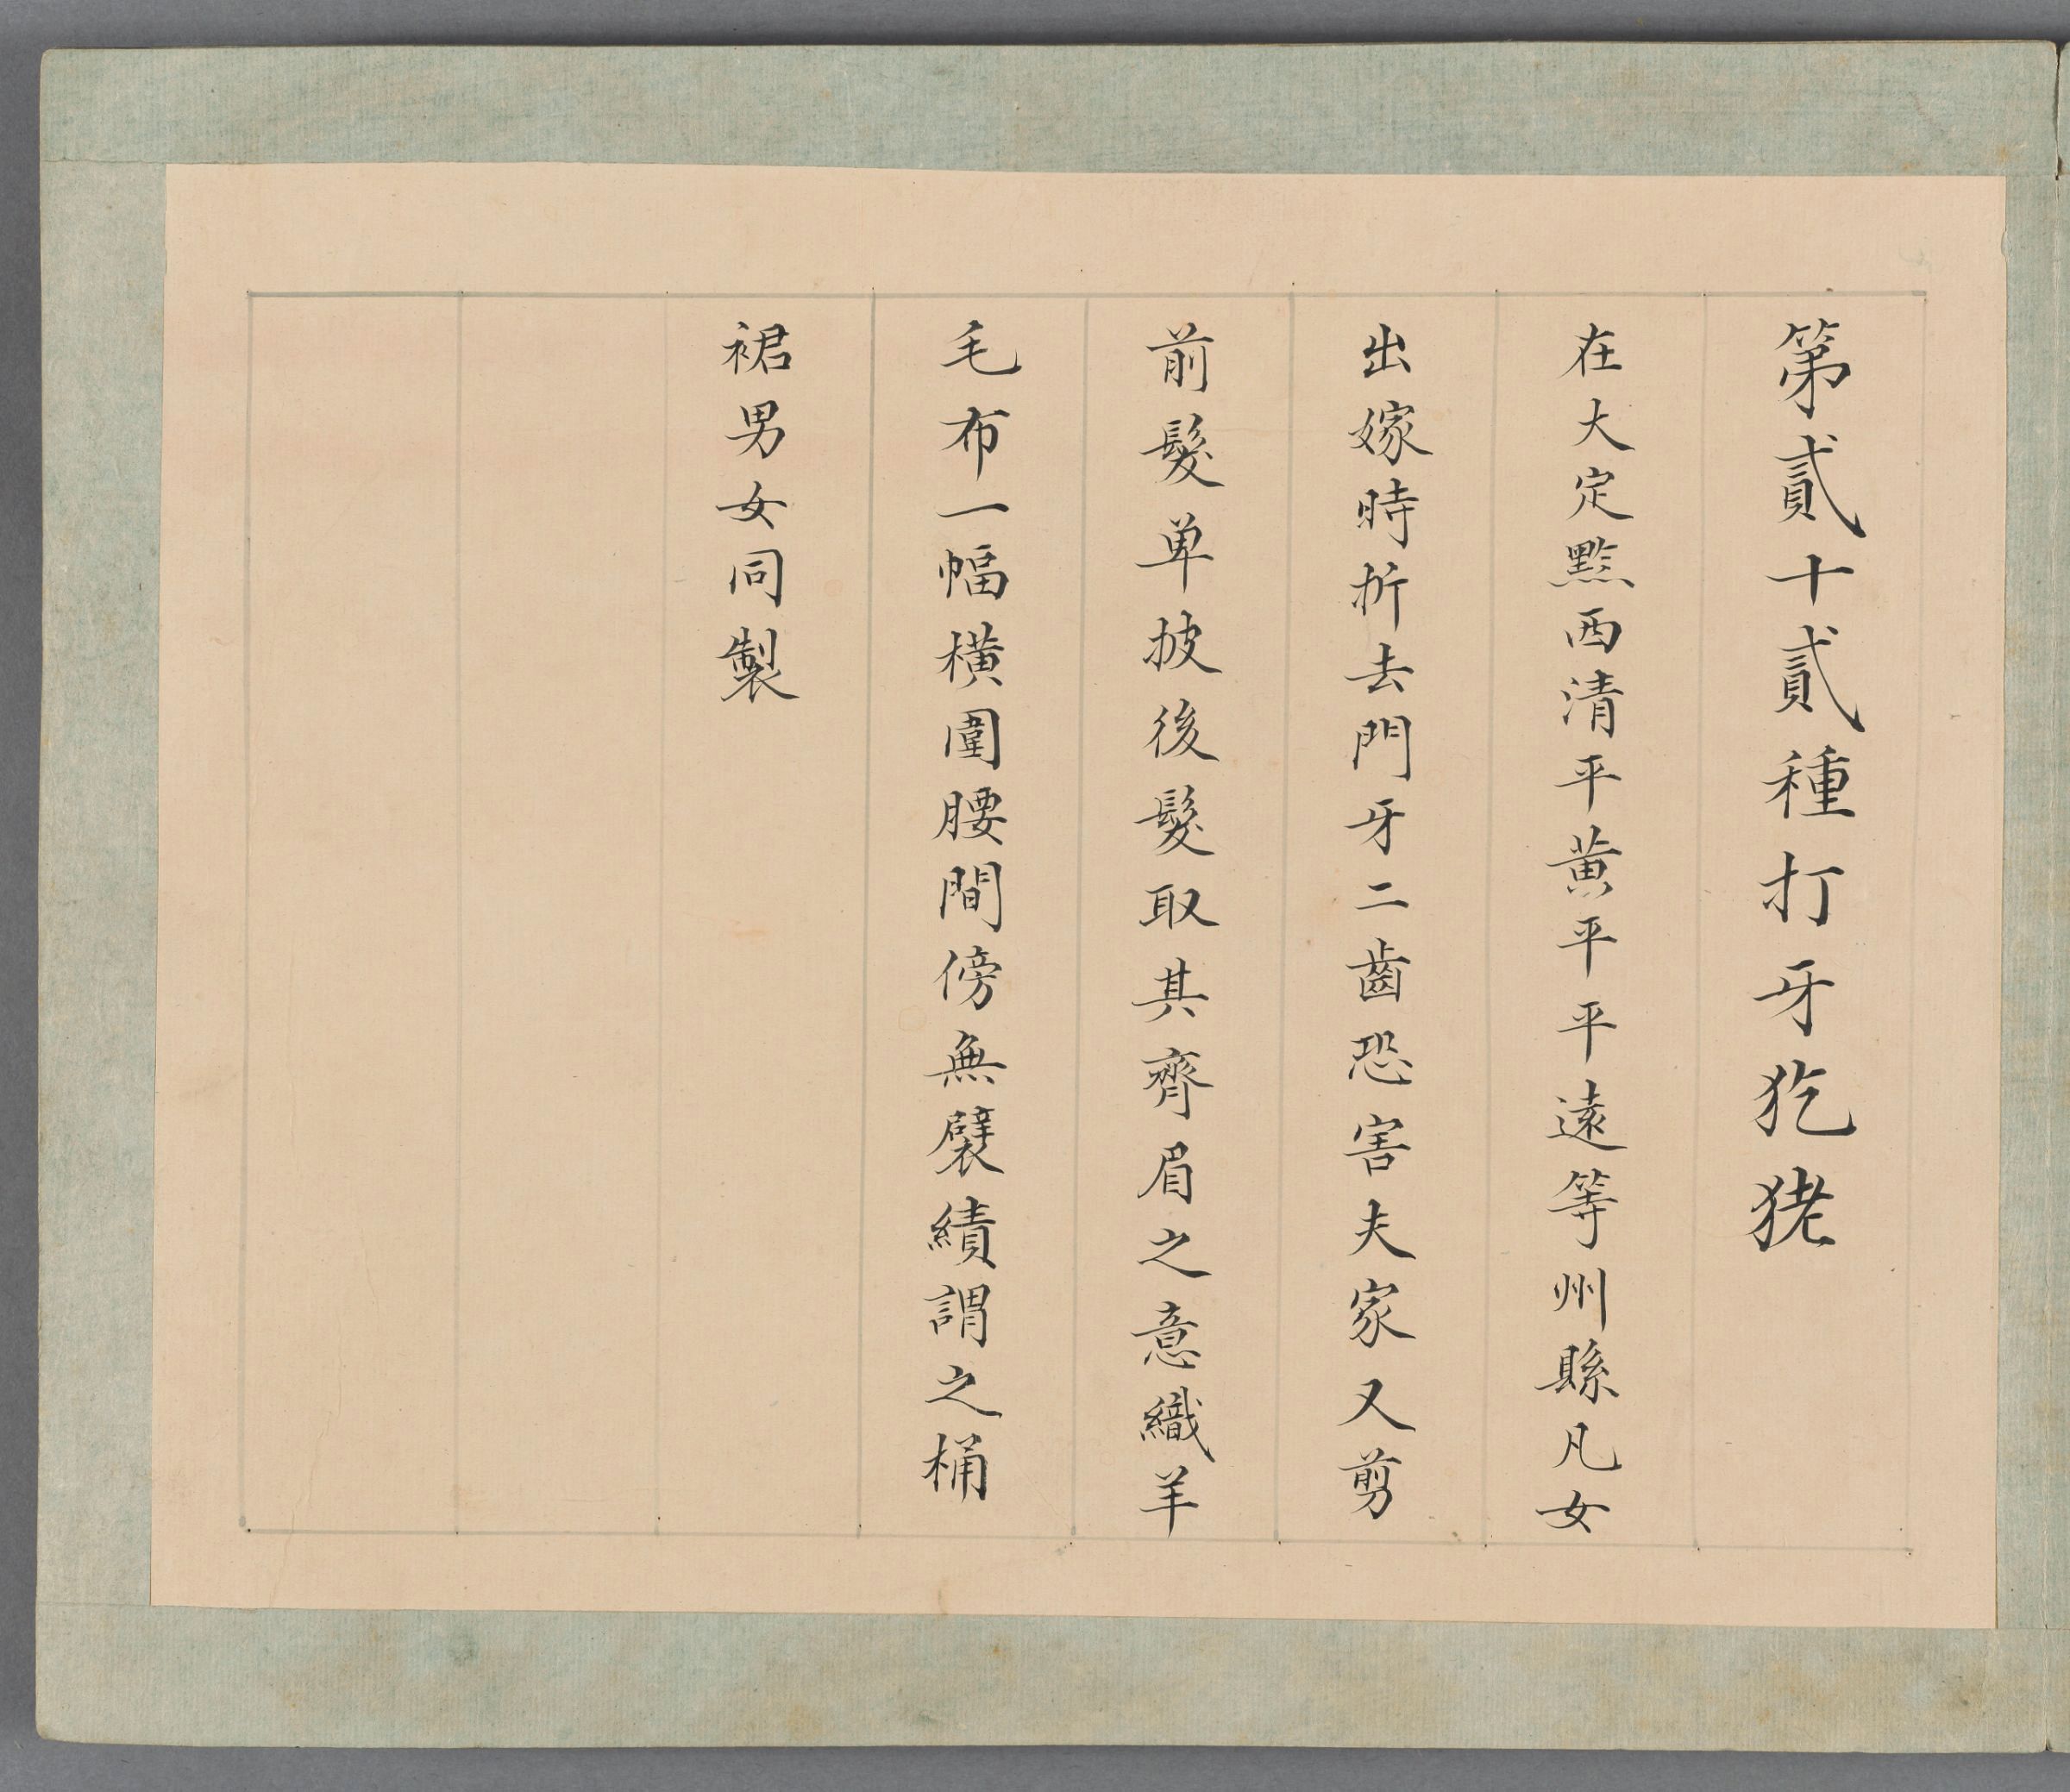 第貳十貳種打牙犵狫
在大定黔西清平黃平平遠等州縣凡女
出嫁時折去門牙二齒恐害夫家又剪
前髮单披後髮取其齊眉之意織羊
毛布一幅橫圍腰間傍無襞績謂之桶
裙男女同製